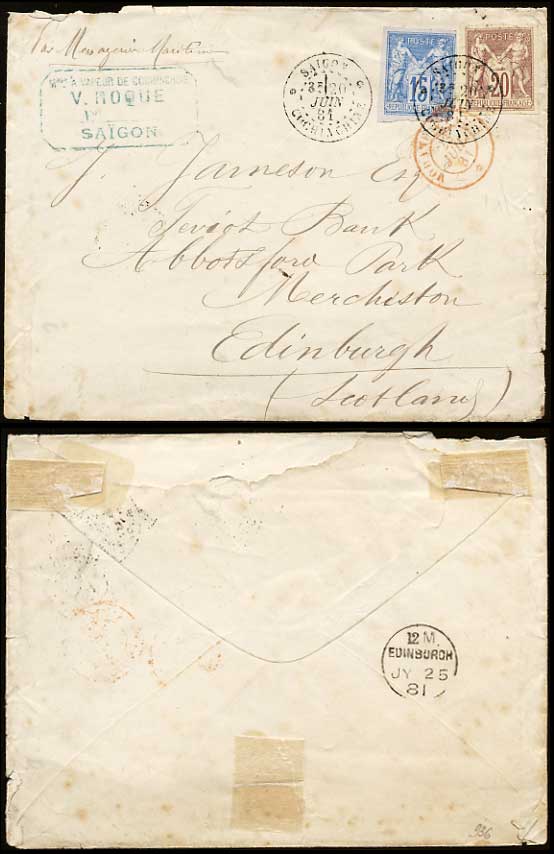 Par Messageries Maritimes
A VAPEUR DE COCHINCHINE
V. ROQUE
SAÏGON
SAIGON
3E 20
JUIN
81
COCHINCHINE
POSTE
15
REPUBLIQUE FRANCAISE
POSTE
20
REPUBLIQUE FRANCAISE
SAIGON
20
JUIN
81
MODANE
J. Jameson Esq
Teviot Bank
Abbotsford Park
Merchiston
Edinburgh
(Scotland)
12 M.
EDINBURGH
JY 25
81
936